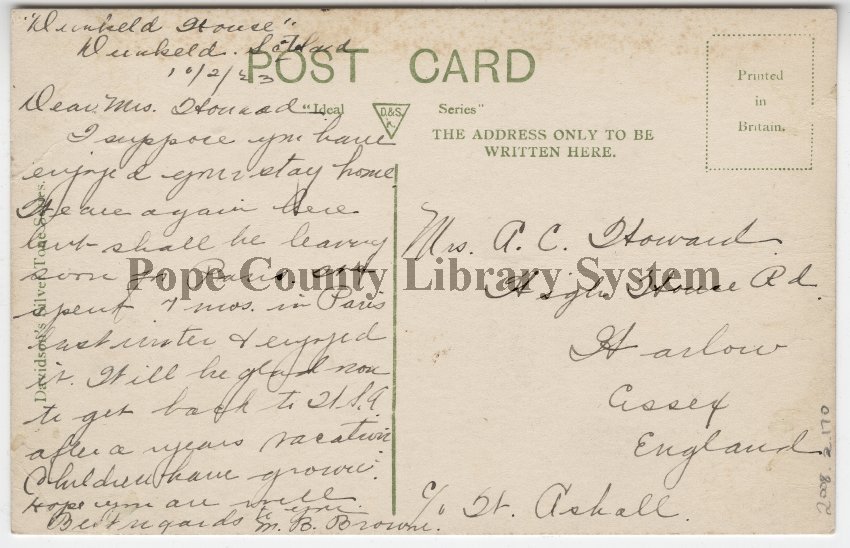 "Dunkeld House"
Dunkeld. Scotland
10/2/23
POST CARD
Dear Mrs. Howard
"Ideal D&S. K. Series"
THE ADDRESS ONLY TO BE
WRITTEN HERE.
Printed
in
Britain.
I suppose you have
enjoyed your stay home
We are again here
but shall be leaving
soon for Paris.
spent 7 mos. in Paris
last winter & enjoyed
it. Will be glad now
to get back to U.S.A
after a years vacation
Children have grown.
Hope you are well
Best regards to you.
M. B. Browne.
Mrs. A. C. Howard
High House Rd.
Harlow
Essex
England
c/o W. Askall.
Davidson's Silver Tone Series.
Pope County Library System
2008.2.170